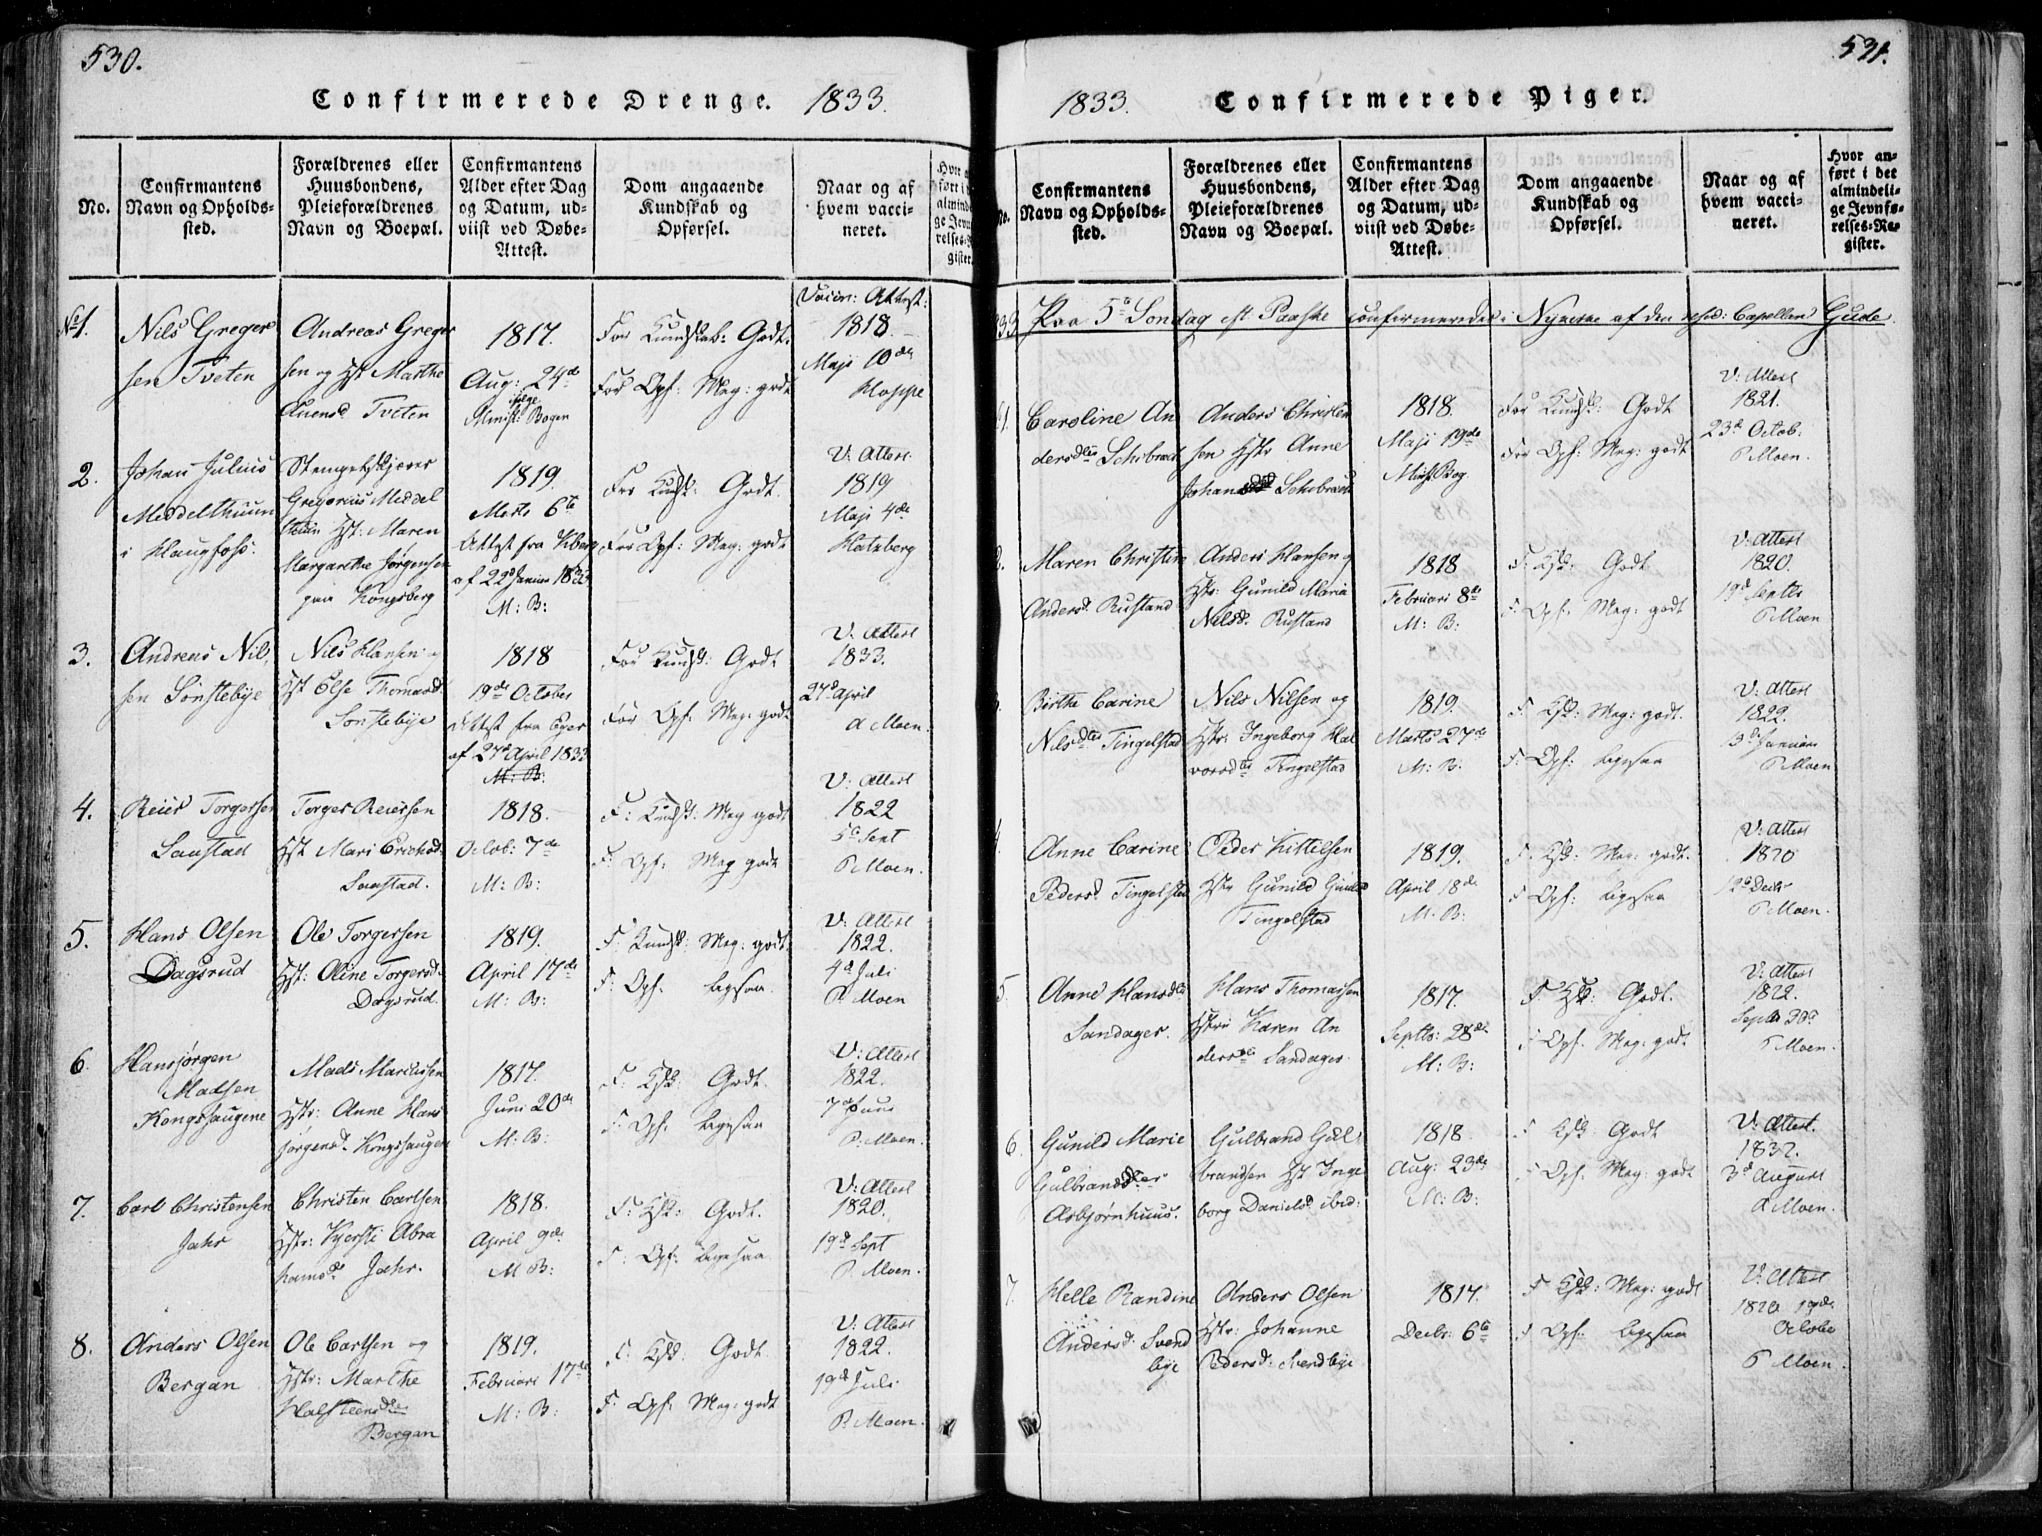 530.
Confirmerede Drenge. 1833.
No.
Confirmantens
Navn og Opholds-
sted.
Forældrenes eller
Huusbondens,
Pleieforældrenes
Navn og Boepæl.
Confirmantens
Alder efter Dag
og Datum, ud-
viist ved Døbe-
Attest.
Dom angaaende
Kundskab og
Opførsel.
Naar og af
hvem vacci-
neret.
No 1.
Nils Greger
sen Tveten
Andreas Greger
sen og Hst Marthe
Tveten
1817.
Aug: 24de
ifølge
Minist: Bogen
For Kundskab: Godt.
For Opf: Meg: godt
Vaccin: Attest:
1818.
Maji 10de
Hoppe
2.
Johan Julius
Meddelthuun
i Haugfoss.
Stempelskjærer
Gregorius Meddel
thuun Hst: Maren
Margarethe Jørgensen
paa Kongsberg
1819.
Marts 6te
Attest fra Kberg
af 22d Januar 1833
M: B:
For Kundsk: Godt.
For Opf: Meg: godt
V: Attest
1819
Maji 4de
Hatzberg
3.
Andreas Nil,
sen Sønstebye
Nils Hansen og
Hst Else Thomasd.
Sønstebye
1818
19de October
Attest fra Eger
af 27d April 1833
M: B:
For Kundsk: Godt
For Opf: Meg: godt
V: Attest
1833.
27d April
A Moen.
4.
Reier Torgersen
Saustad
Torger Reiersen
Hst Mari Erichsd.
Saustad.
1818.
Octob: 7de
M: B:
F: Kundsk: Meg godt
F: Opf: Meg godt
V: Attest
1822
5te Sept
P. Moen.
5.
Hans Olsen
Dagsrud
Ole Torgersen
Hst: Oline Torgersd.
Dagsrud.
1819.
April 17de
M: B:
F: Kundsk: Meg: godt.
F: Opf. ligesaa
V: Attest
1822.
4d Juli
P. Moen
6.
Hansjørgen
Madsen
Kongshaugene
Mads Marcusen
Hstr: Anne Hans
jørgensd. Kongshaugen
1817.
Juni 20de
M: B:
F: Ksk: Godt.
F: Opf. ligesaa
V: Attest
1822.
7d Juni
P: Moen.
7.
Carl Christensen
Jahr
Christen Carlsen
Hstr: Kjersti Abra
hamsdr Jahr.
1818.
April 9de
M: B:
F: Ksk: Godt.
F: Opf: ligesaa
V: Attest
1820.
19d Sept
P. Moen.
8.
Anders Olsen
Bergan
Ole Carlsen og
Hstr: Marthe
Halfsteensdr
Bergan
1819.
Februari 17de
M: B:
F: Ksk: Godt
F: Opf: Meg: godt
V: Attest
1822.
19d Juli
P. Moen.
531.
1833. Confirmerede Piger.
No.
Confirmantens
Navn og Opholds-
sted.
Forældrenes eller
Huusbondens,
Pleieforældrenes
Navn og Boepæl.
Confirmantens
Alder efter Dag
og Datum, ud-
viist ved Døbe-
Attest.
Dom angaaende
Kundskab og
Opførsel.
Naar og af
hvem vacci-
neret.
Hvor an-
ført i det
almindeli-
ge Jevnfø-
relses-Re-
gister.
Paa 5te Søndag eft Paaske confirmerede i Nykirke af den resid: Capellan Gude
1.
Caroline An
dersdtr Schibræd
Anders Christen
sen Hstr Anne
Johansd Schibræd
1818.
Maji 19de
Minist Bog
For Kundsk: Godt
For Opf: Meg: godt
V: Attest
1821.
23d Octob.
P Moen.
2.
Maren Christin
Andersd. Rustand
Anders Hansen og
Hstr: Gunild Maria
Nilsd. Rustand
1818
Februari 8de
M: B:
F: Ksk: Godt
F: Opf. Meg: godt
V: Attest
1820.
19d Septbr
P Moen
3
Birthe Carine
Nilsdtr Tingelstad
Nils Nilsen og
Hstr: Ingeborg Hal
vorsdtr Tingelstad
1819.
Marts 27de
M: B:
F. Ksk: Meg: godt.
F. Opf: ligesaa
V: Attest
1822.
3d Januar
P Moen
4
Anne Carine
Pedersd. Tingelstad
Peder Kittelsen
Hstr Gunild
Tingelstad
1819.
April 18de
M. B:
F. Ksk: Meg: godt.
F Opf: ligesaa
V: Attest
1820
12d Decbr
P Moen.
5.
Anne Hansdtr
Sandager.
Hans Thomassen
Hstru Karen An
dersdtr Sandager.
1817.
Septbr: 28de
M: B:
F Ksk: Godt.
F Opf. Meg: godt
V. Attest
1822.
Septb 30d
P Moen.
6.
Gunild Marie
Gulbrandsdtr
Asbjørnhuus.
Gulbrand Gul
brandsen Hst Inge
borg Danielsd ibid:
1818
Aug: 23de
M: B:
F Ksk: Godt
F Opf. Meg: godt
V: Attest.
1832.
3d August
A Moen.
7.
Helle Randine
Andersd. Svend
bye
Anders Olsen
Hstr: Johanne
Pedersd: Svendbye
1817.
Decbr. 6te
F Ksk: Meg: godt
F Opf: ligesaa
V: Attest
1820 19de
October
P Moen.